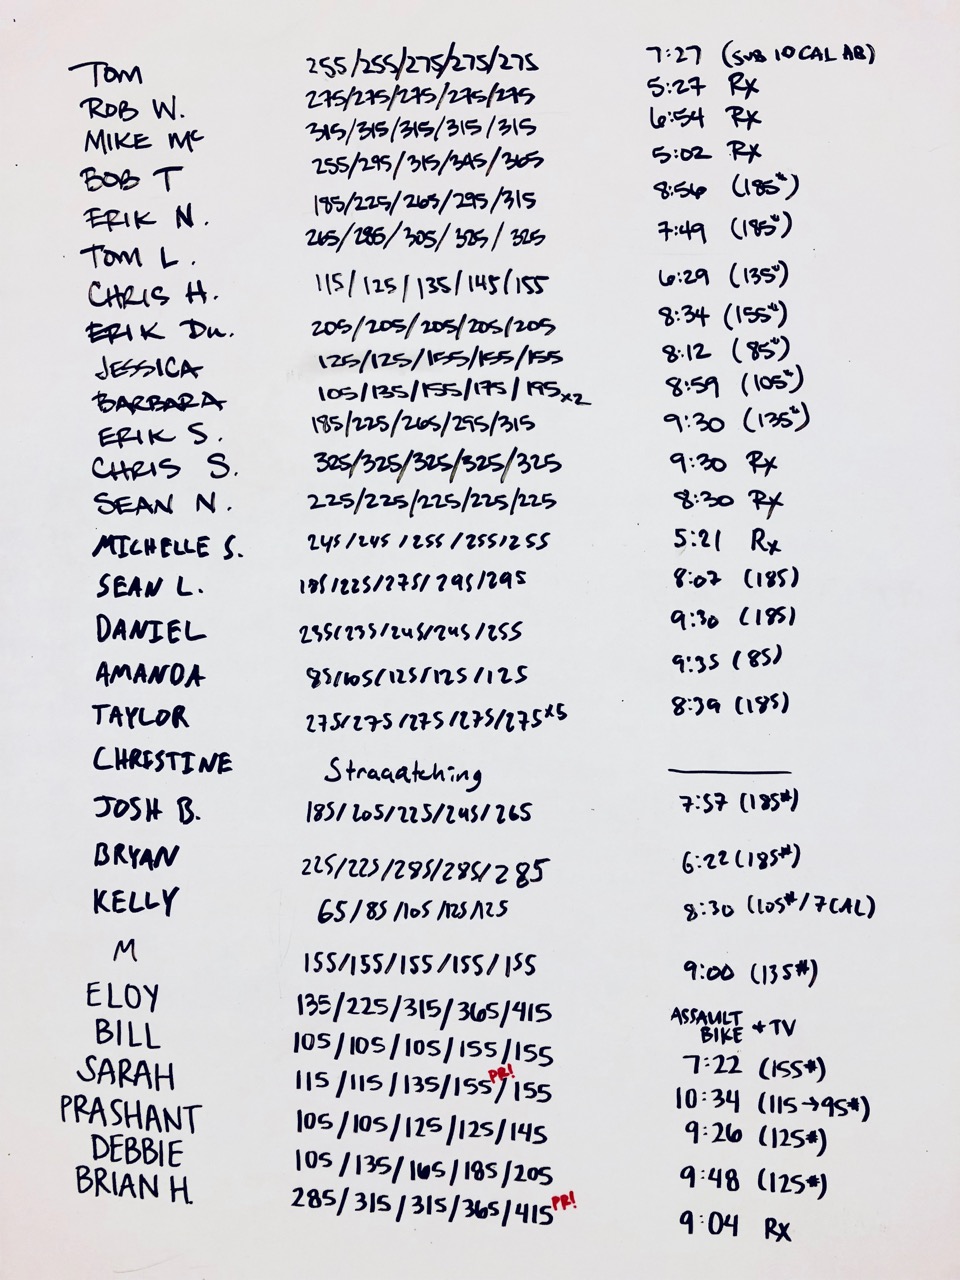 TOM 255/255/275/275/275 7:27 (SUB 10 CAL AB)
ROB W. 275/275/275/275/275 5:27 Rx
MIKE Mc 315/315/315/315/315 6:54 Rx
BOB T 255/295/315/345/365 5:02 Rx
ERIK N. 185/225/265/295/315 8:56 (185#)
TOM L. 265/285/305/325/325 7:49 (185#)
CHRIS H. 115/125/135/145/155 6:29 (135#)
ERIK Du. 205/205/205/205/205 8:34 (155#)
JESSICA 125/125/155/155/155 8:12 (85#)
BARBARA 105/135/155/175/195x2 8:59 (105#)
ERIK S. 185/225/265/295/315 9:30 (135#)
CHRIS S. 325/325/325/325/325 9:30 Rx
SEAN N. 225/225/225/225/225 8:30 Rx
MICHELLE S. 245/245/255/255/255 5:21 Rx
SEAN L. 185/225/275/295/295 8:07 (185)
DANIEL 235/235/245/245/255 9:30 (185)
AMANDA 85/105/125/125/125 9:35 (85)
TAYLOR 275/275/275/275/275x5 8:39 (185)
CHRISTINE Straaatching
JOSH B. 185/205/225/245/265 7:57 (185#)
BRYAN 225/225/285/285/285 6:22 (185#)
KELLY 65/85/105/125/125 8:30 (105#/7CAL)
M 155/155/155/155/155 9:00 (135#)
ELOY 135/225/315/365/415 ASSAULT BIKE + TV
BILL 105/105/105/155/155 7:22 (155#)
SARAH 115/115/135/155 PR!/155 10:34 (115→95#)
PRASHANT 105/105/125/125/145 9:26 (125#)
DEBBIE 105/135/165/185/205 9:48 (125#)
BRIAN H. 285/315/315/365/415 PR! 9:04 Rx